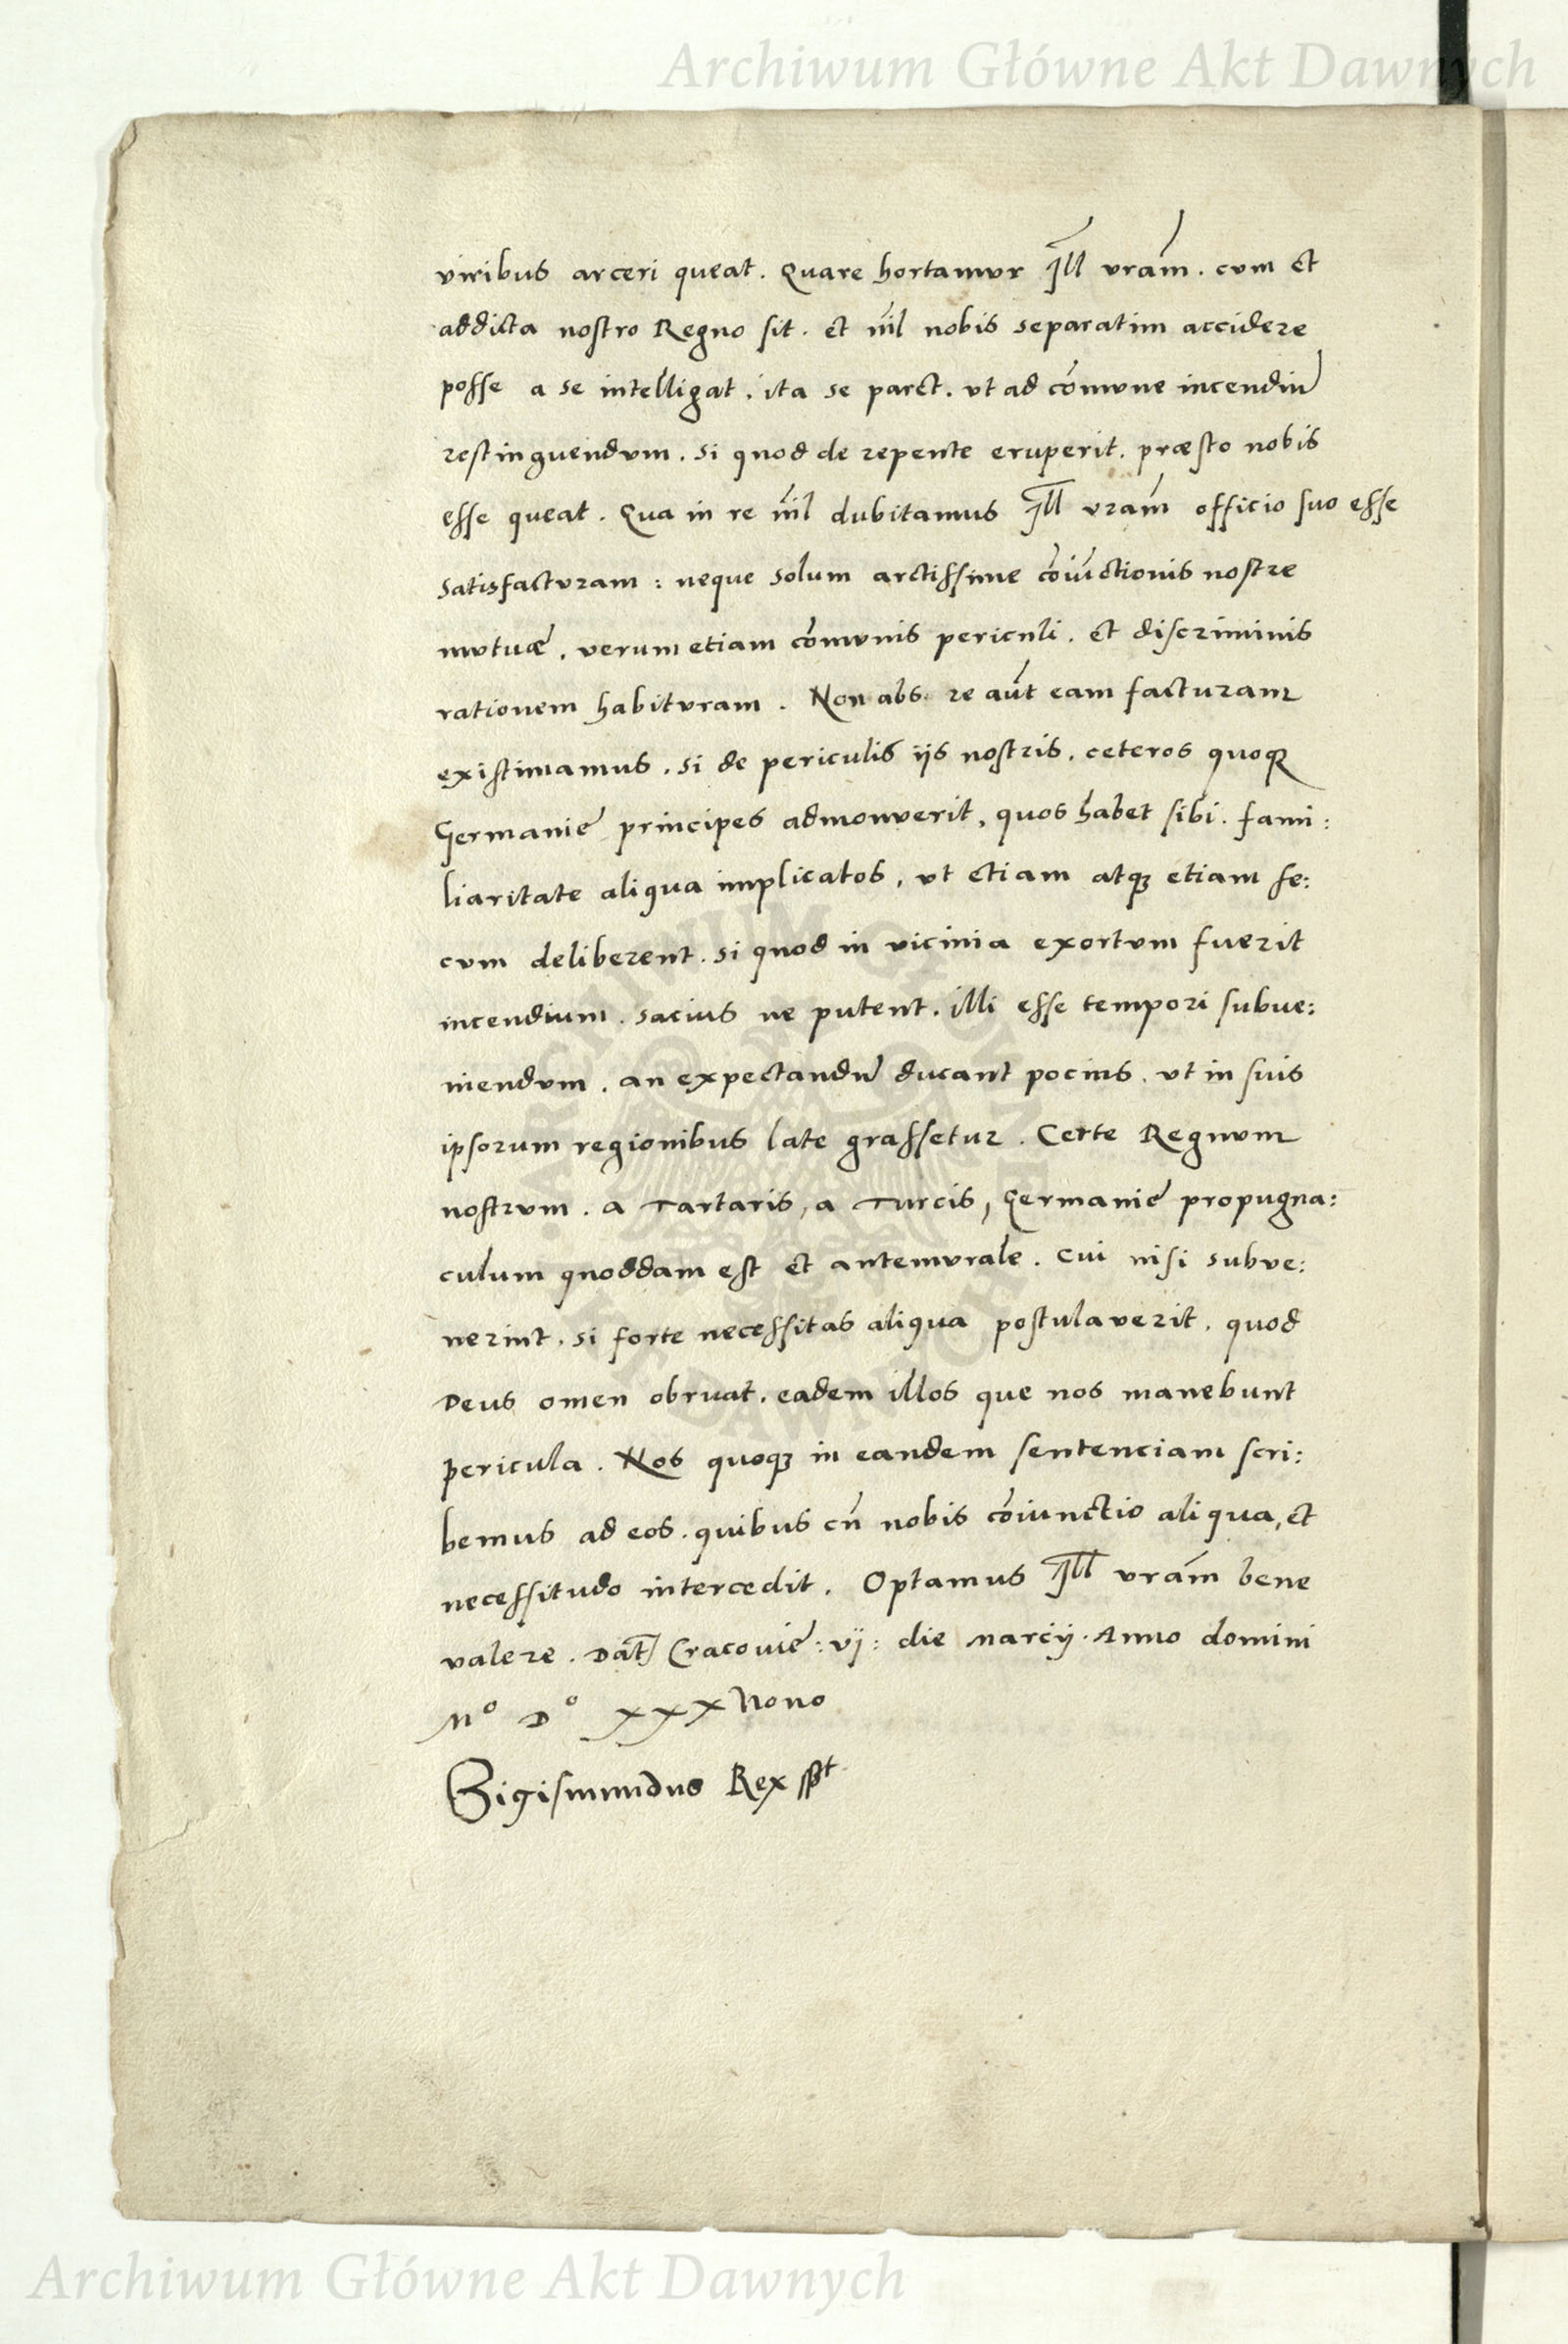 Archiwum Główne Akt Dawnych
viribus arceri queat. Quare hortamur Ill vram. cum et
addicta nostro Regno sit. et nil nobis separatim accidere
posse a se intelligat. ita se paret. ut ad comune incendiu
restinguendum. si quod de repente eruperit. præsto nobis
esse queat. Qua in re nil dubitamus Ill vram officio suo esse
satisfacturam: neque solum arctissime coiuctionis nostre
mutuæ. verum etiam comunis periculi. et discriminis
rationem habituram. Non abs re aut eam facturam
existimamus. si de periculis iis nostris. ceteros quoq
Germanie principes admonuerit, quos habet sibi. fami:
liaritate aliqua implicatos, ut etiam atq etiam se:
cum deliberent. si quod in vicinia exortum fuerit
incendium. sacius ne putent. illi esse tempori subve:
niendum. an expectandu ducant pocius. ut in suis
ipsorum regionibus late grassetur. Certe Regnum
nostrum. a Tartaris, a Turcis, Germanie propugna:
culum quoddam est et antemurale. cui nisi subve:
nerint. si forte necessitas aliqua postulaverit. quod
Deus omen obruat. eadem illos que nos manebunt
pericula. Nos quoq in eandem sentenciam scri:
bemus ad eos. quibus cu nobis coiunctio aliqua, et
necessitudo intercedit. Optamus Ill vram bene
valere. Dat Cracovie: vij: die Marcij. Anno domini
Mº Dº XXX Nono
Sigismundus Rex sst
Archiwum Główne Akt Dawnych